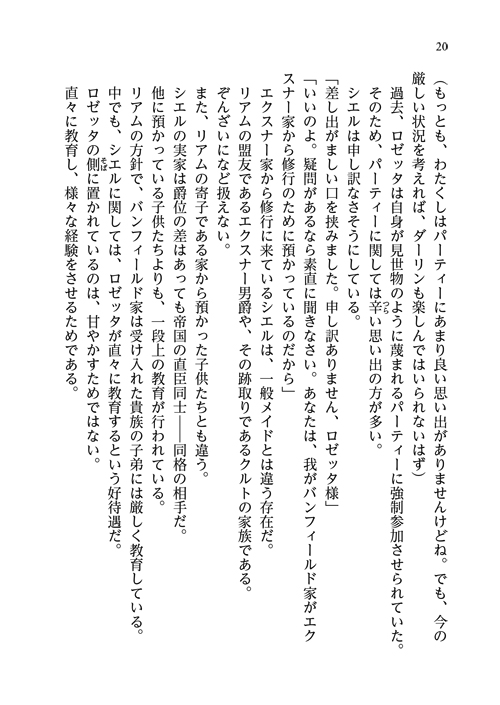 20
（もっとも、わたくしはパーティーにあまり良い思い出がありませんけどね。でも、今の
厳しい状況を考えれば、ダーリンも楽しんではいられないはず）
過去、ロゼッタは自身が見世物のように蔑まれるパーティーに強制参加させられていた。
そのため、パーティーに関しては辛い思い出の方が多い。
シエルは申し訳なさそうにしている。
「差し出がましい口を挟みました。申し訳ありません、ロゼッタ様」
「いいのよ。疑問があるなら素直に聞きなさい。あなたは、我がバンフィールド家がエク
スナー家から修行のために預かっているのだから」
エクスナー家から修行に来ているシエルは、一般メイドとは違う存在だ。
リアムの盟友であるエクスナー男爵や、その跡取りであるクルトの家族である。
ぞんざいになど扱えない。
また、リアムの寄子である家から預かった子供たちとも違う。
シエルの実家は爵位の差はあっても帝国の直臣同士――同格の相手だ。
他に預かっている子供たちよりも、一段上の教育が行われている。
リアムの方針で、バンフィールド家は受け入れた貴族の子弟には厳しく教育している。
中でも、シエルに関しては、ロゼッタが直々に教育するという好待遇だ。
ロゼッタの側に置かれているのは、甘やかすためではない。
直々に教育し、様々な経験をさせるためである。